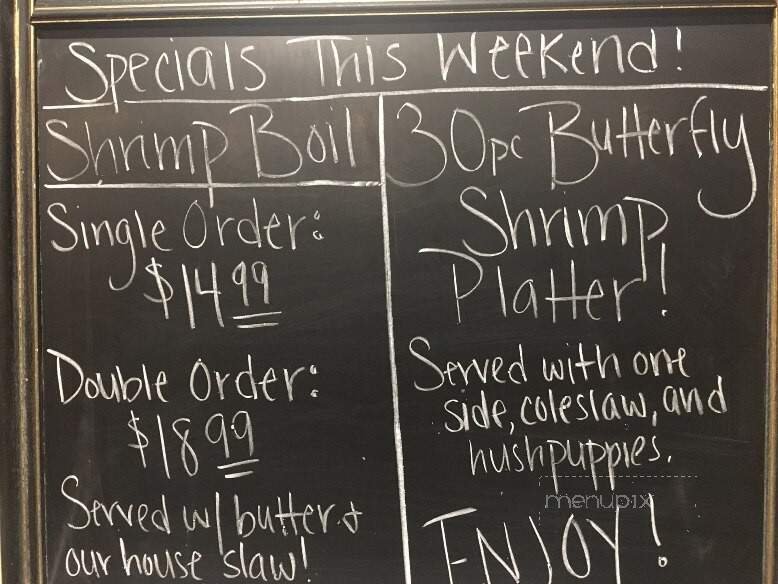 Specials This Weekend!
Shrimp Boil
Single Order:
$14.99
Double Order:
$18.99
Served w/ butter &
our house slaw!
30pc Butterfly
Shrimp
Platter!
Served with one
side, coleslaw, and
hushpuppies.
ENJOY!
menupix